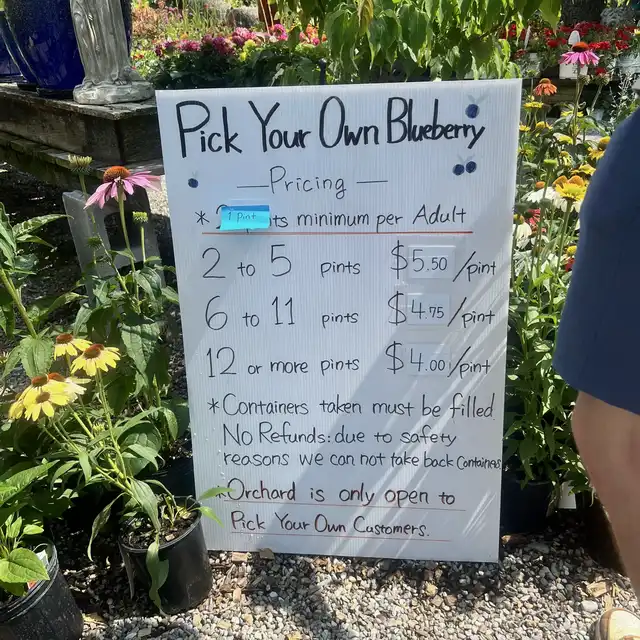 Pick Your Own Blueberry
— Pricing —
* 1 Pint ts minimum per Adult
2 to 5 pints $5.50/pint
6 to 11 pints $4.75/pint
12 or more pints $4.00/pint
* Containers taken must be filled
No Refunds: due to safety
reasons we can not take back Containers
* Orchard is only open to
Pick Your Own Customers.